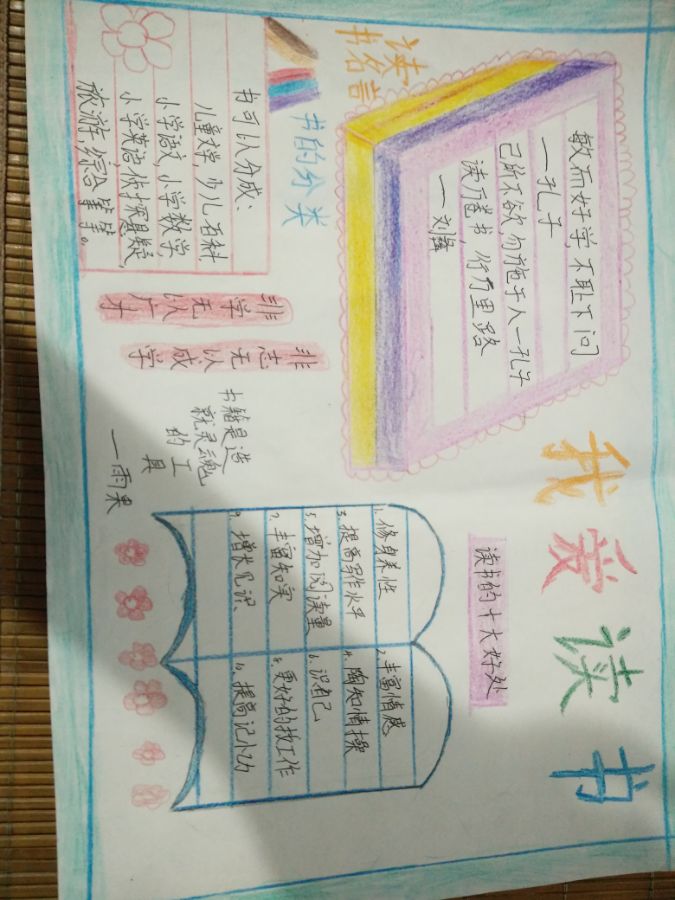 我爱读书
读书名言
敏而好学,不耻下问
—孔子
己所不欲,勿施于人—孔子
读万卷书,行万里路
—刘彝
书的分类
书可以分成:
儿童文学,少儿百科
小学语文,小学数学,
小学英语,侦探悬疑,
旅游,综合等等。
非学无以广才
非志无以成学
书籍是造
就灵魂
的工
具
—雨果
读书的十大好处
1.修身养性
2.丰富情感
3.提高写作水平
4.陶知情操
5.增加阅读量
6.识自己
7.丰富知实
8.更好的找工作
9.增长见识、
10.提高记小功